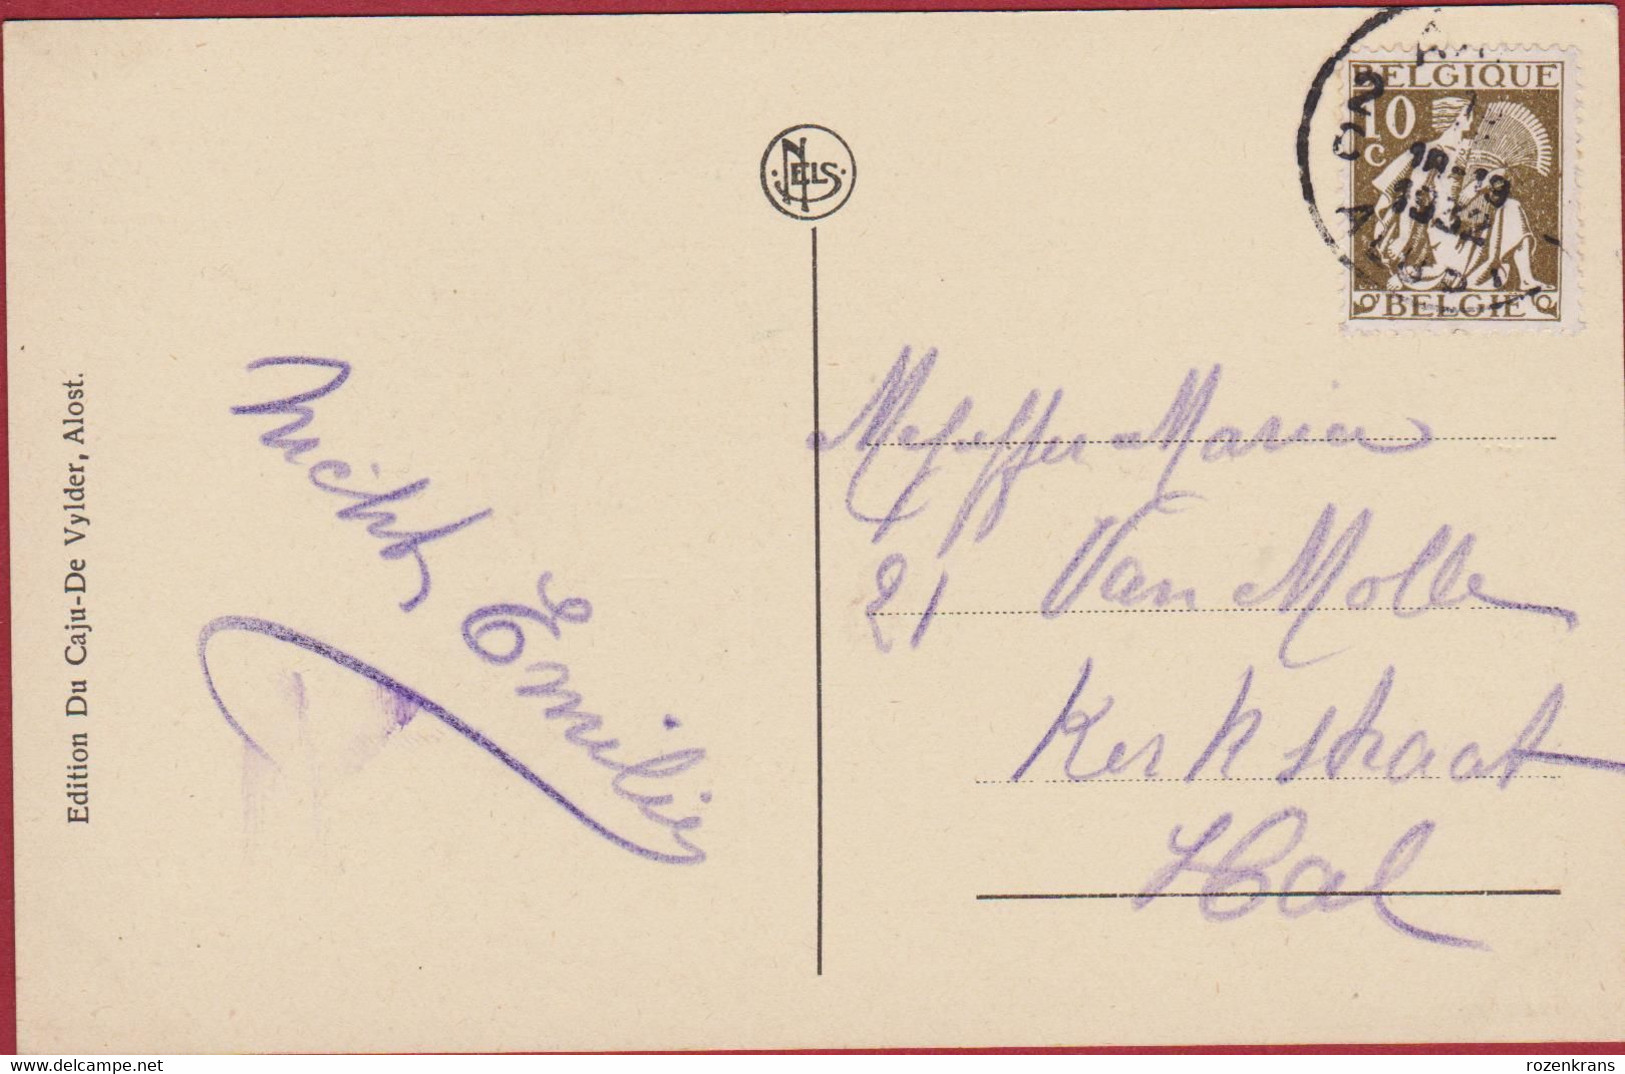 Edition Du Caju-De Vylder, Alost.
NELS
BELGIQUE
10
c
18-19
1932
BELGIË
nicht
Emilie
Mejuffer Maria
Van Molle
21
Kerkstraat
Hal
www.delcampe.net
rozenkrans